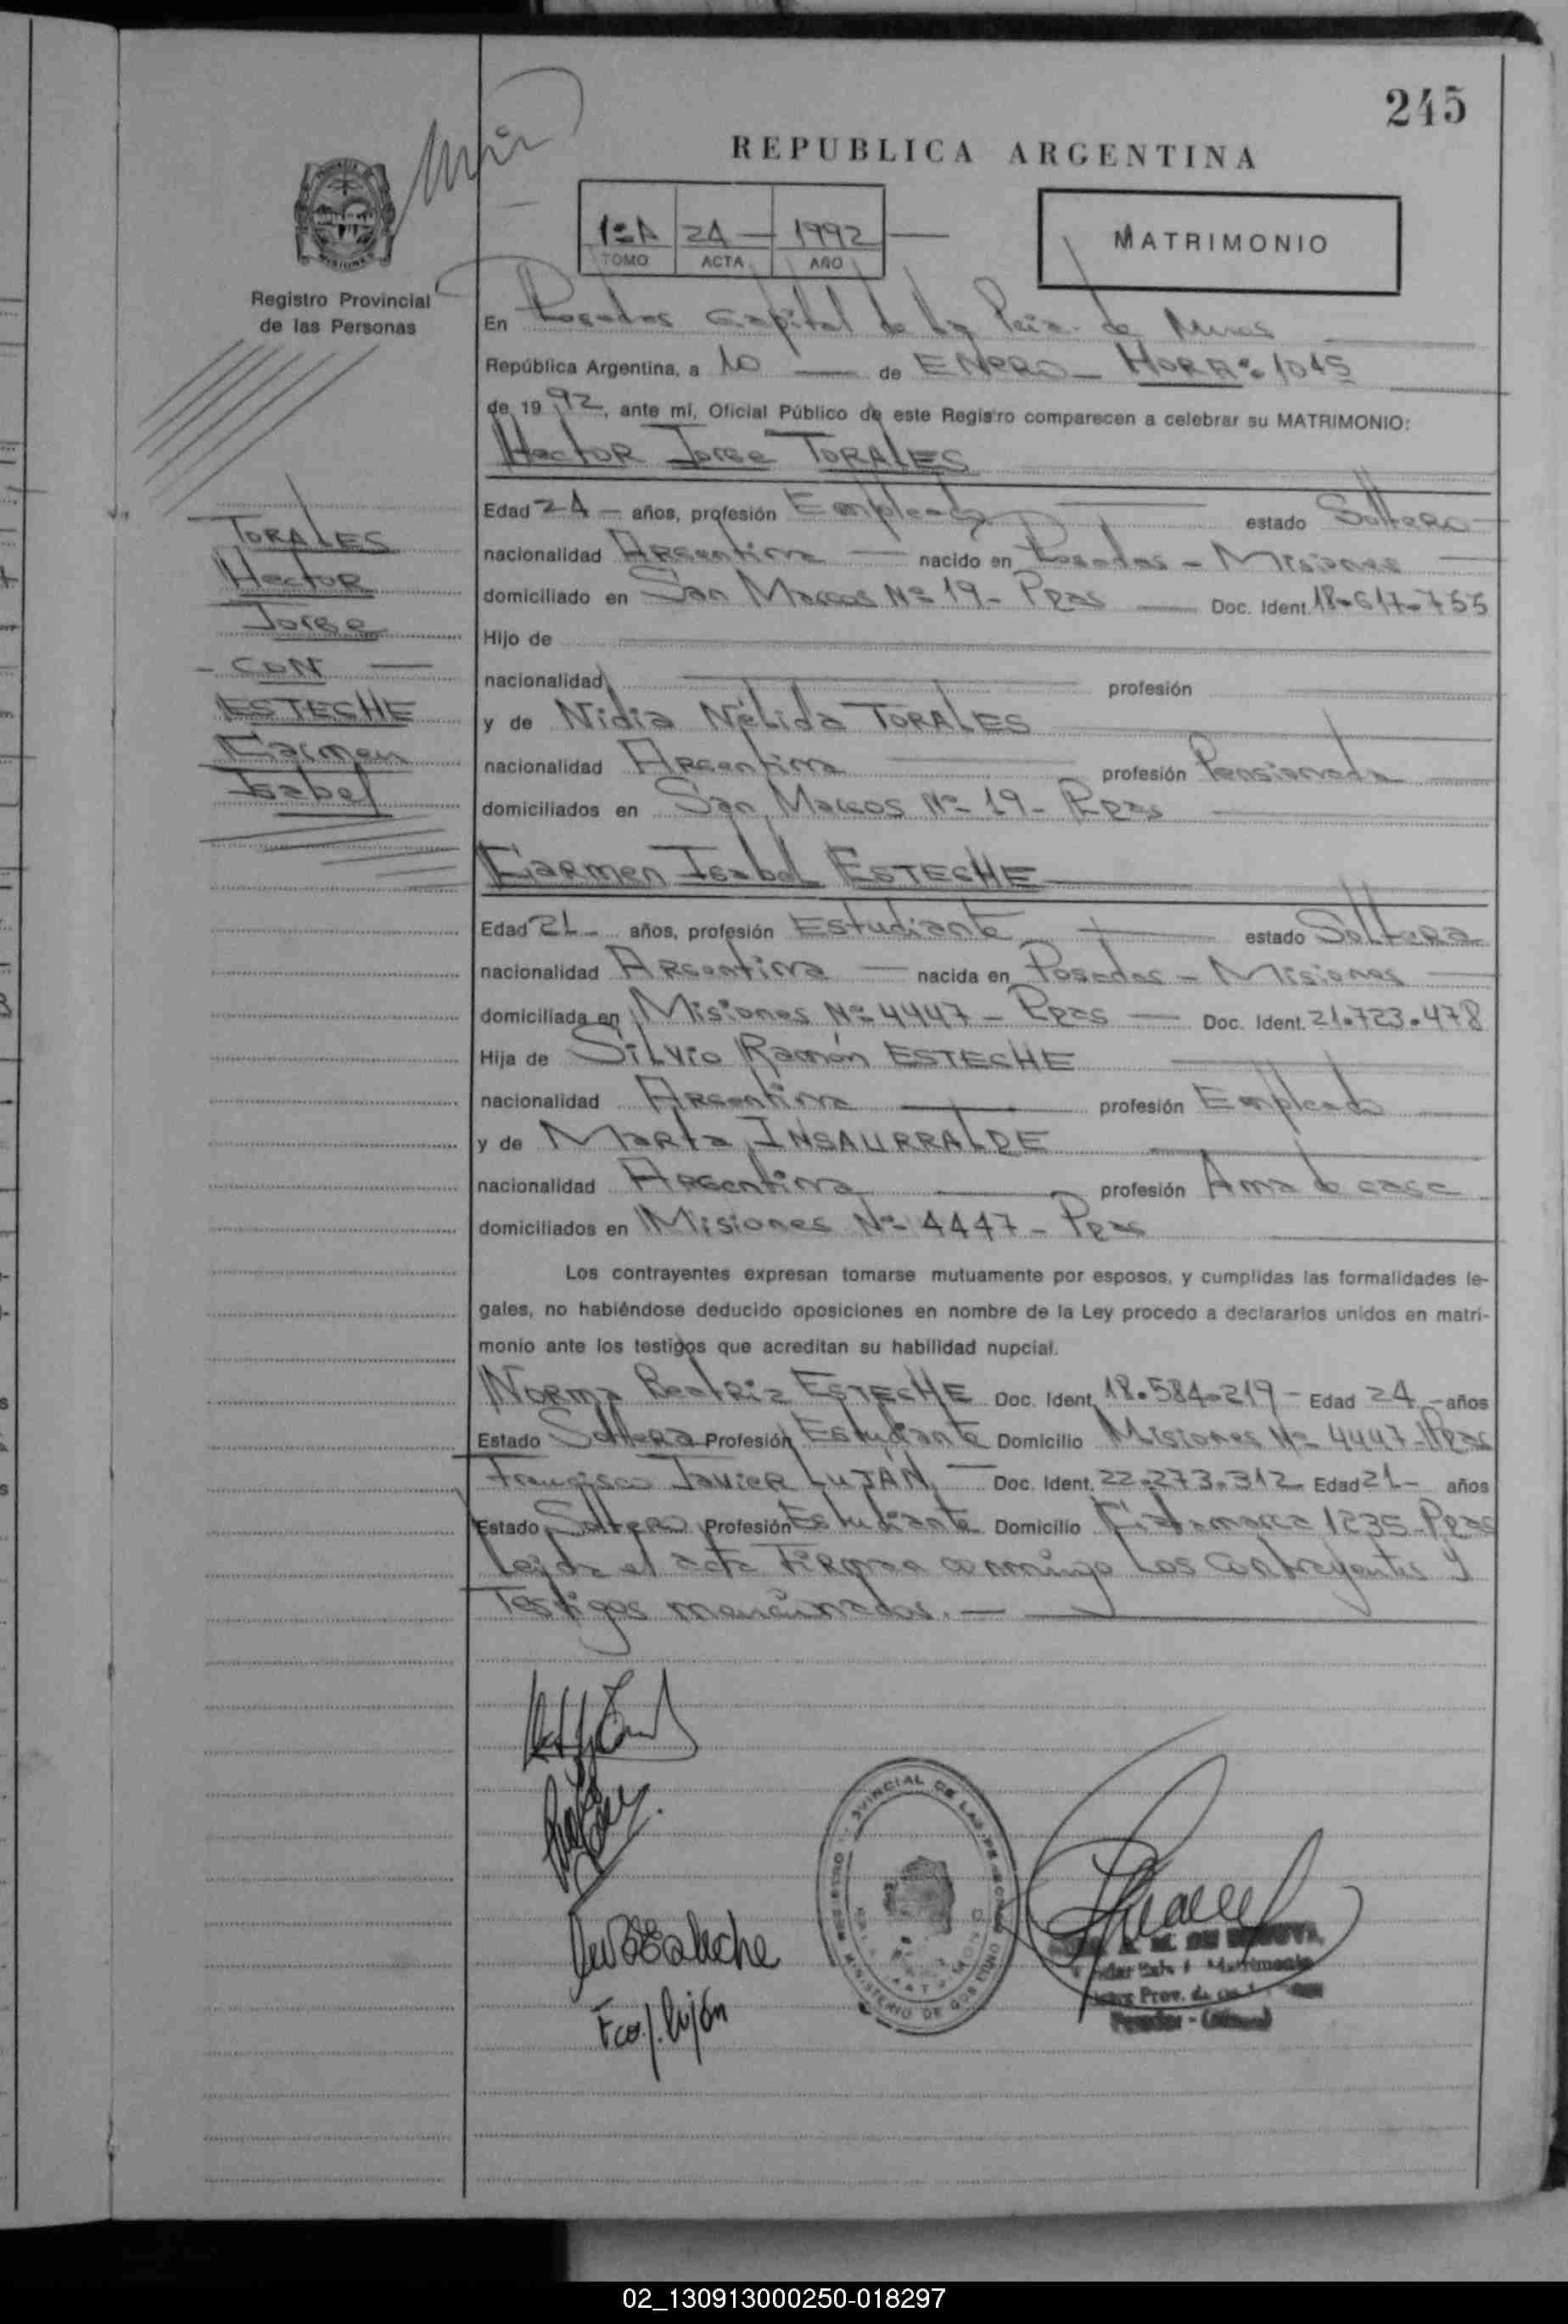 245
REPUBLICA ARGENTINA
1ºA 24 — 1992 —
TOMO ACTA AÑO
MATRIMONIO
MISIONES
Registro Provincial
de las Personas
En Posadas Capital de la Pcia. de Mnes
República Argentina, a 10 — de ENERO — HORA: 1015
de 19 92, ante mí, Oficial Público de este Registro comparecen a celebrar su MATRIMONIO:
Hector Jorge TORALES
Edad 24 — años, profesión Empleado estado Soltero
nacionalidad Argentina — nacido en Posadas - Misiones
domiciliado en San Marcos Nº 19 - Pdas — Doc. Ident. 18.617.755
Hijo de
nacionalidad profesión
y de Nidia Nélida TORALES
nacionalidad Argentina profesión Pensionada
domiciliados en San Marcos Nº 19 - Pdas
Carmen Isabel ESTECHE
Edad 21 - años, profesión Estudiante estado Soltera
nacionalidad Argentina — nacida en Posadas - Misiones
domiciliada en Misiones Nº 4447 - Pdas — Doc. Ident. 21.723.478
Hija de Silvio Ramón ESTECHE
nacionalidad Argentina profesión Empleado
y de Marta INSAURRALDE
nacionalidad Argentina profesión Ama de casa
domiciliados en Misiones Nº 4447 - Pdas
Los contrayentes expresan tomarse mutuamente por esposos, y cumplidas las formalidades le-
gales, no habiéndose deducido oposiciones en nombre de la Ley procedo a declararlos unidos en matri-
monio ante los testigos que acreditan su habilidad nupcial.
Norma Beatriz ESTECHE Doc. Ident. 18.584.219 - Edad 24 - años
Estado Soltera Profesión Estudiante Domicilio Misiones Nº 4447 - Pdas
Francisco Javier LUJÁN — Doc. Ident. 22.273.312 Edad 21 - años
Estado Soltero Profesión Estudiante Domicilio Catamarca 1235 - Pdas
Leída el acta Firman conmigo los contrayentes y
Testigos mencionados. —
TORALES
Hector
Jorge
- CON —
ESTECHE
Carmen
Isabel
Fco. J. Luján
MINISTERIO DE GOBIERNO
02_130913000250-018297